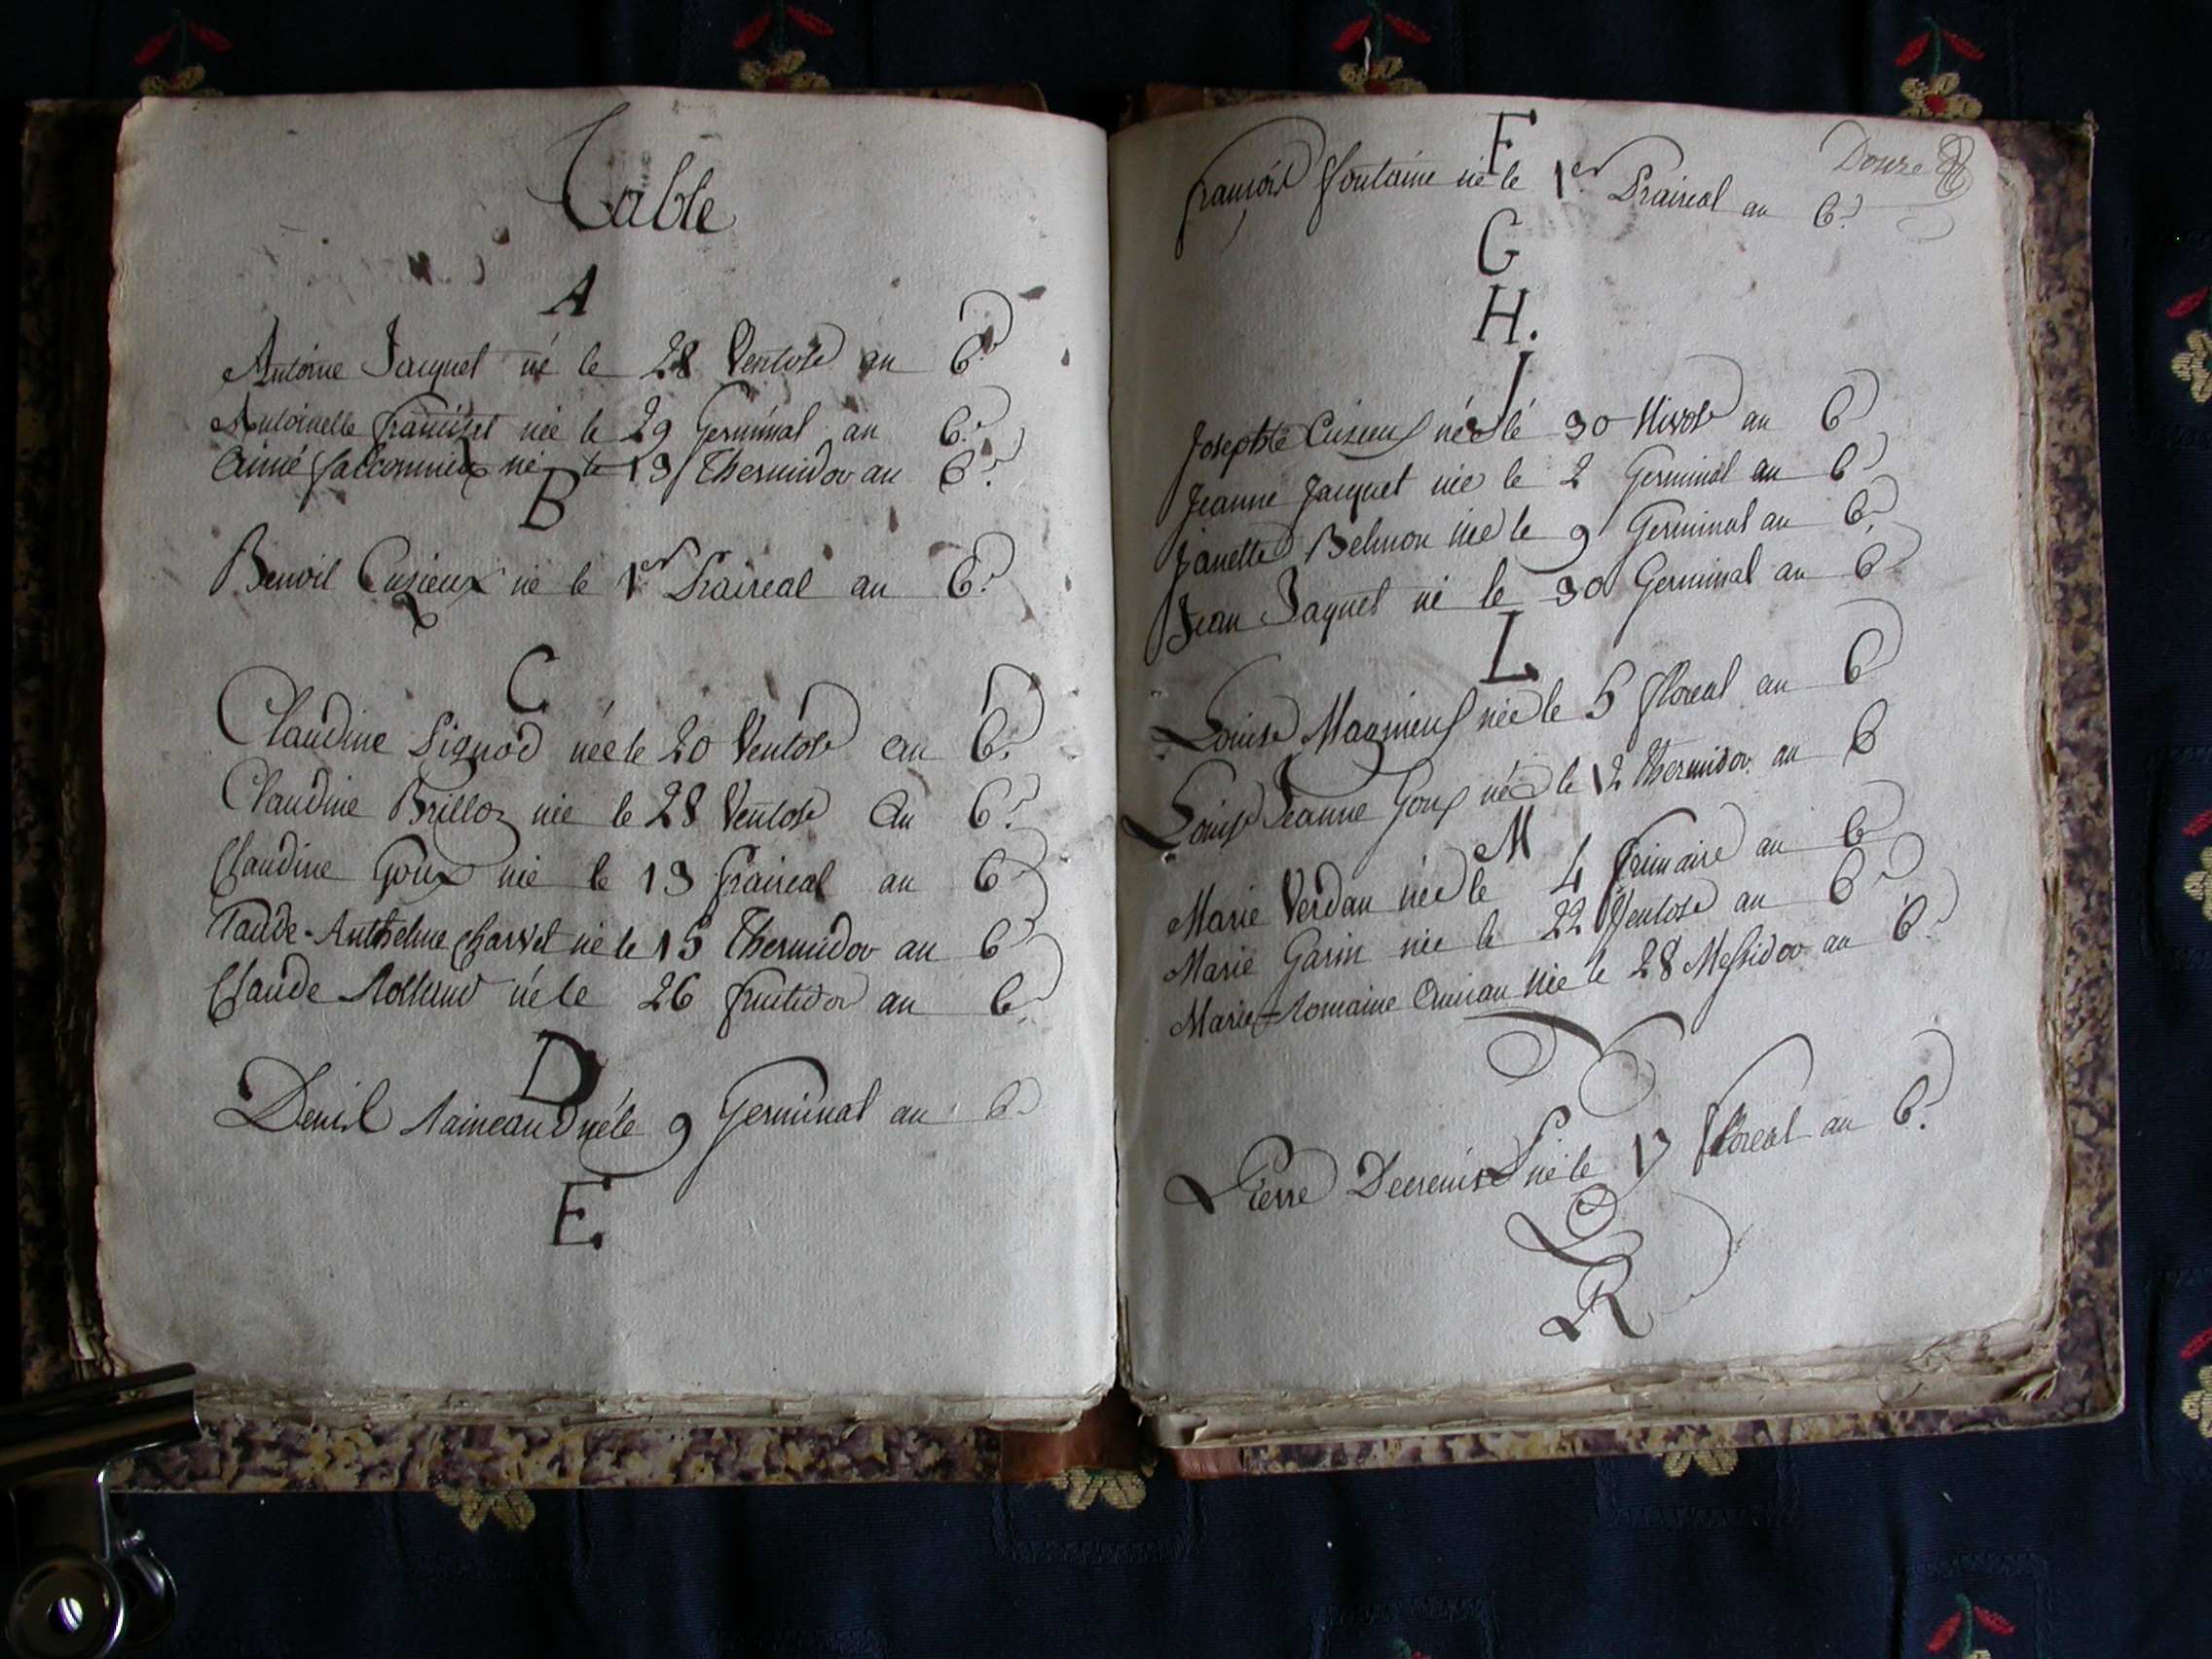 Table
A
Antoine Jacquet né le 28 Ventose an 6.e
Antoinette francisset née le 29 Germinal an 6.e
Aimé falconnier né le 19 Thermidor an 6.e
B
Benoit Cusieux né le 1er Praireal an 6.e
C
Claudine Pignod née le 20 Ventose an 6.e
Claudine Brilloz née le 28 Ventose an 6.e
Claudine Goux née le 13 praireal an 6.e
Claude-Anthelme Charvet né le 15 Thermidor an 6.e
Claude Rolland né le 26 fructidor an 6.e
D
Denis né le 9 Germinal an 6.e
E.
Douze
F
françois fontaine né le 1er Praireal an 6.e
G
H.
J
Josephte Cusieux née le 30 Nivose an 6
Jeanne Jacquet née le 2 Germinal an 6.e
Janette Belmon née le 9 Germinal an 6.e
Jean Jaquet né le 30 Germinal an 6
L
Louise née le 5 floreal an 6
Louise Jeanne Goux née le 12 thermidor an 6
M
Marie Verdan née le 4 frimaire an 6
Marie Garin née le 22 Ventose an 6.e
Marie-Romaine née le 28 Messidor an 6.e
P
Pierre né le 17 floreal an 6.e
Q
R